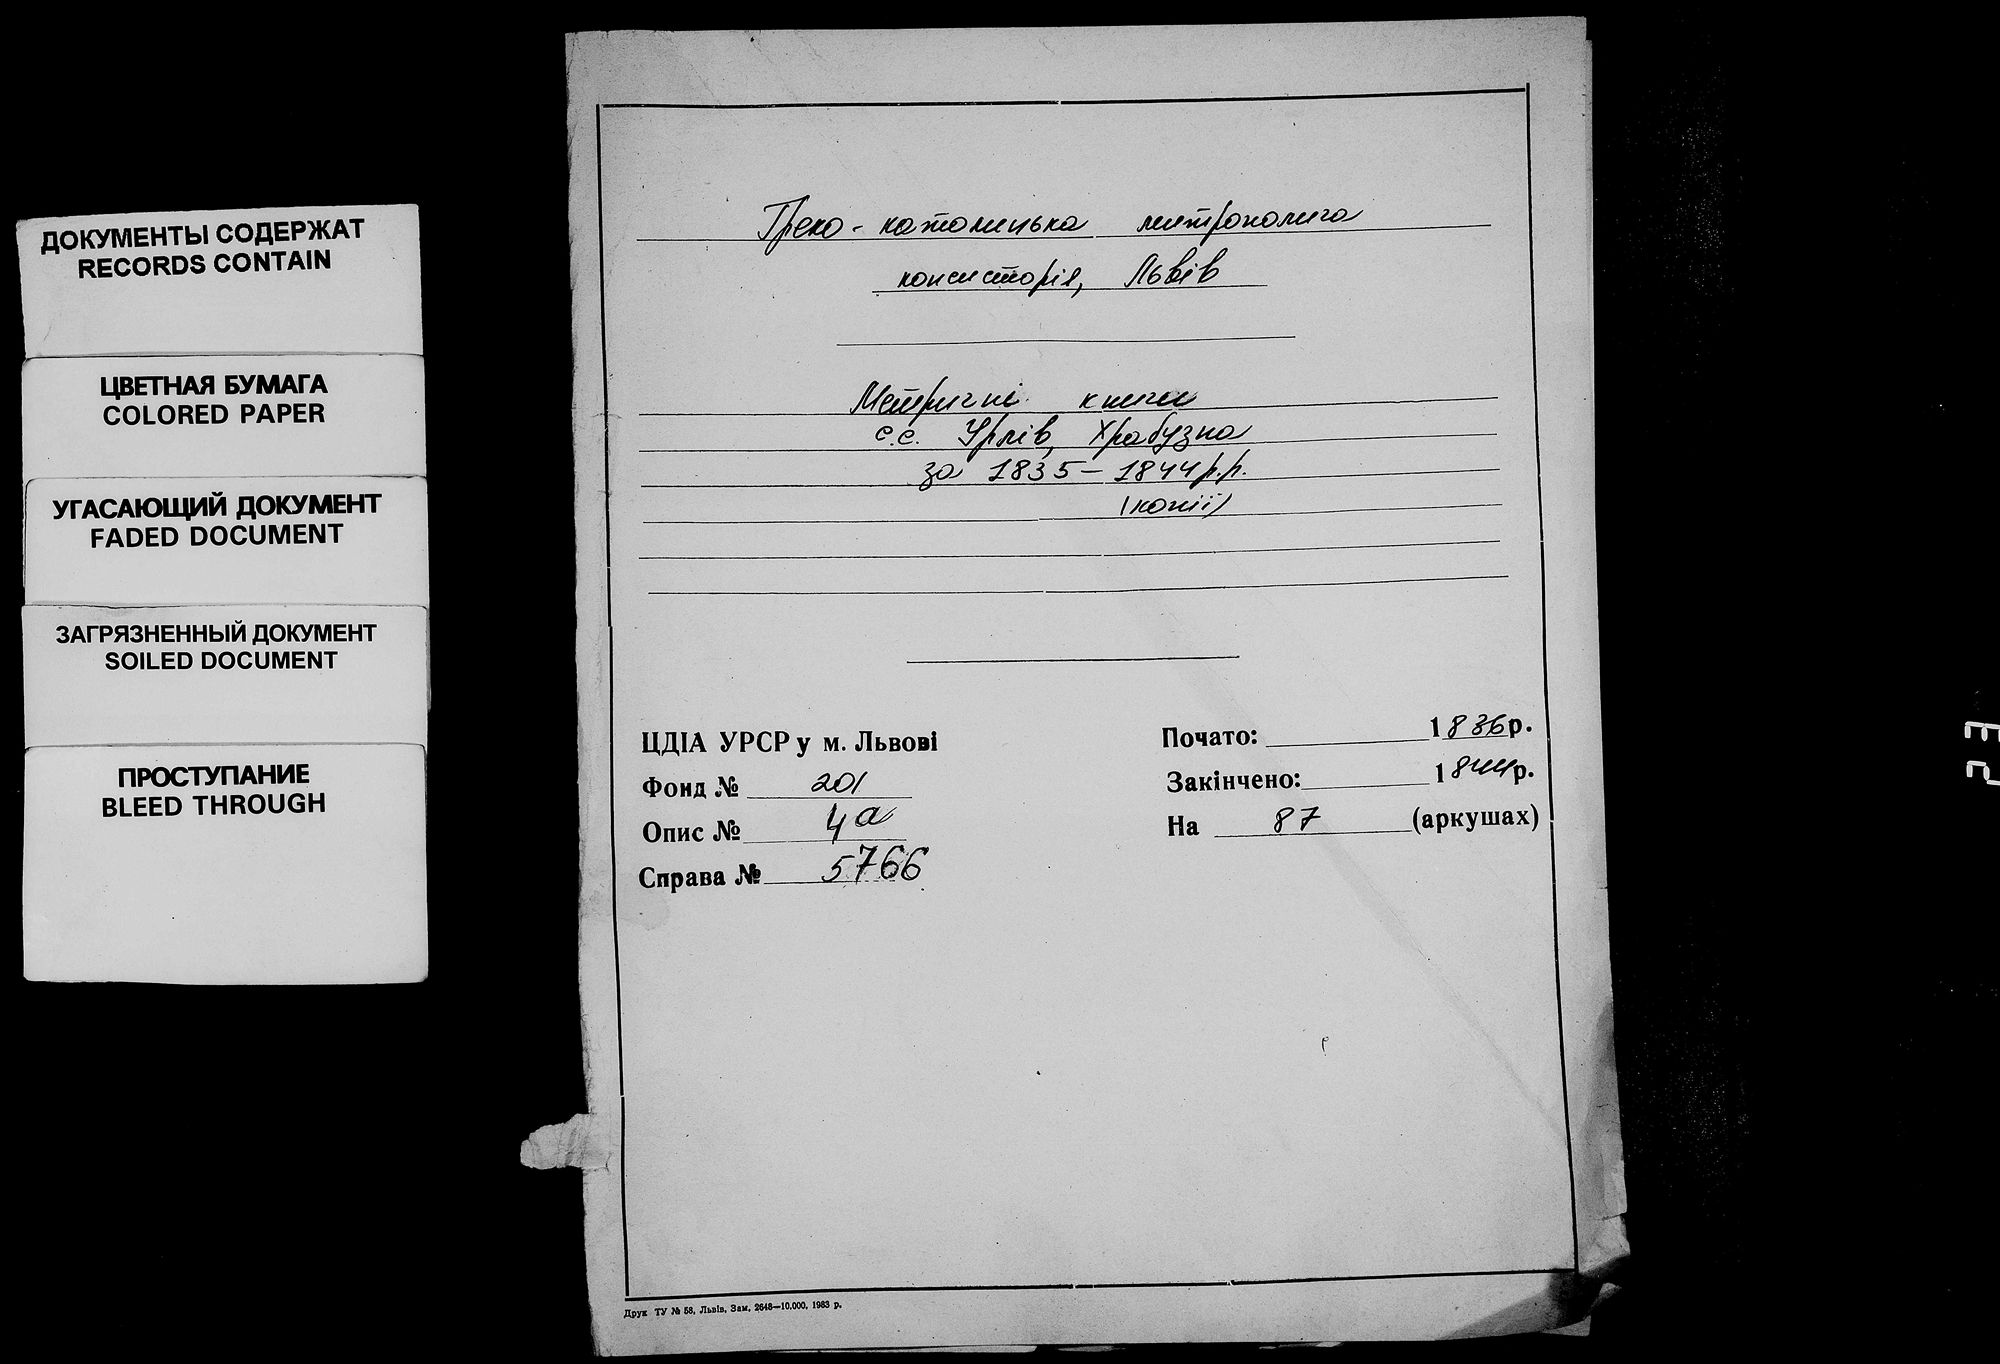 ДОКУМЕНТЫ СОДЕРЖАТ
RECORDS CONTAIN
ЦВЕТНАЯ БУМАГА
COLORED PAPER
УГАСАЮЩИЙ ДОКУМЕНТ
FADED DOCUMENT
ЗАГРЯЗНЕННЫЙ ДОКУМЕНТ
SOILED DOCUMENT
ПРОСТУПАНИЕ
BLEED THROUGH
Греко-католицька митрополича
консисторія, Львів
Метричні книги
с.с. Урлів, Храбузна
за 1835-1844 р.р.
(копії)
ЦДІА УРСР у м. Львові
Фонд № 201
Опис № 4а
Справа № 5766
Почато: 1836 р.
Закінчено: 1844 р.
На 87 (аркушах)
Друк ТУ № 58, Львів, Зам. 2648—10.000, 1983 р.